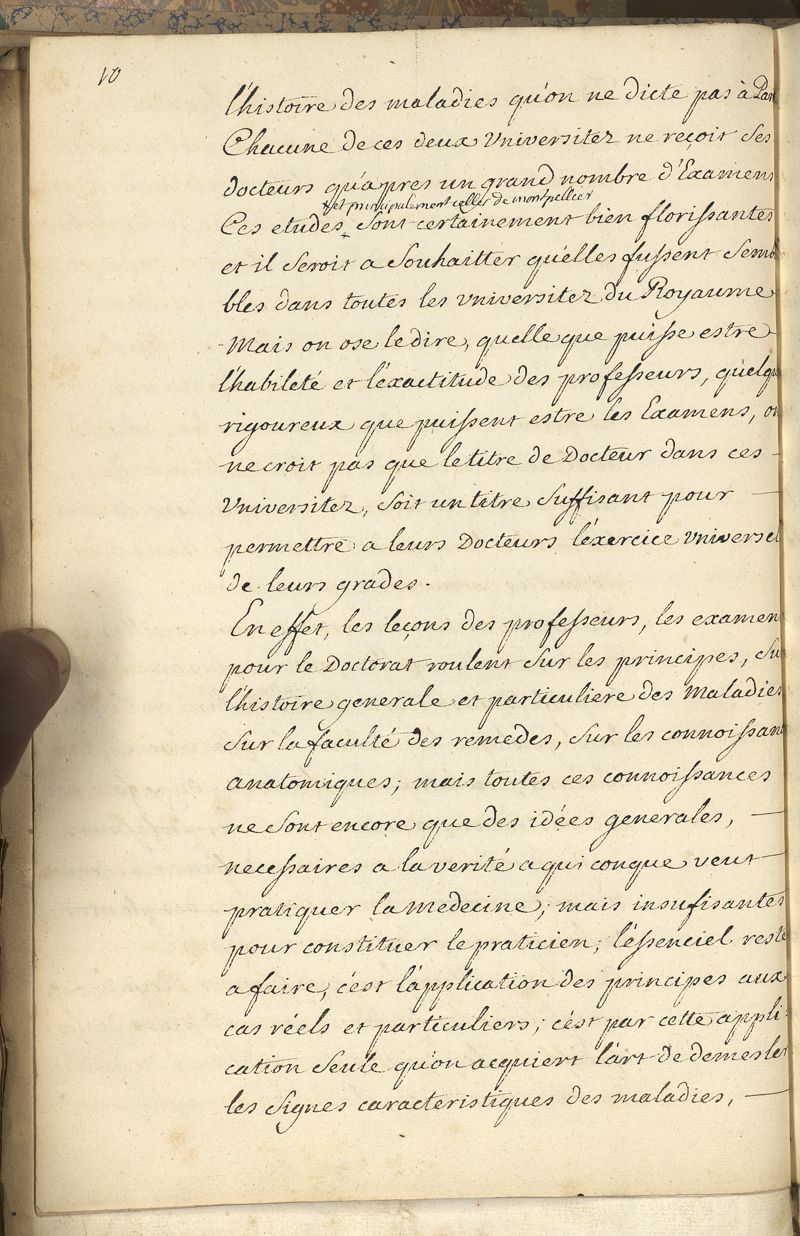 10
l'histoire des maladies qu'on ne dicte pas à Par
Chacune de ces deux Universitez ne reçoit ses
docteurs qu'apres un grand nombre d'Examens
+ et principalement celles de montpellier
Ces etudes + sont certainement bien florissantes
et il seroit a souhaitter qu'elles fussent semb
bles dans toutes les universitez du Royaume
Mais on ose le dire, quelle que puisse estre
l'habileté et l'exactitude des professeurs, quelqu
rigoureux que puissent estre les Examens, on
ne croit pas que le titre de Docteur dans ces -
Universitez, soit un titre suffisant pour —
permettre a leurs Docteurs l'exercice universel
de leurs grades.
En effet, les leçons des professeurs, les examen
pour le Doctorat roulent sur les principes, su
l'histoire generale et particuliere des Maladies
sur la faculté des remedes, sur les connoissan
anatomiques; mais toutes ces connoissances
ne sont encore que des idées generales, —
necessaires a la verité a qui conque veut —
pratiquer la Medecine; mais insufisantes
pour constituer le praticien; l'essenciel reste
a faire, c'est l'application des principes aux
cas réels et particuliers; c'est par cette appli-
cation seule qu'on acquiert l'art de demesler
les signes caracteristiques des maladies, —